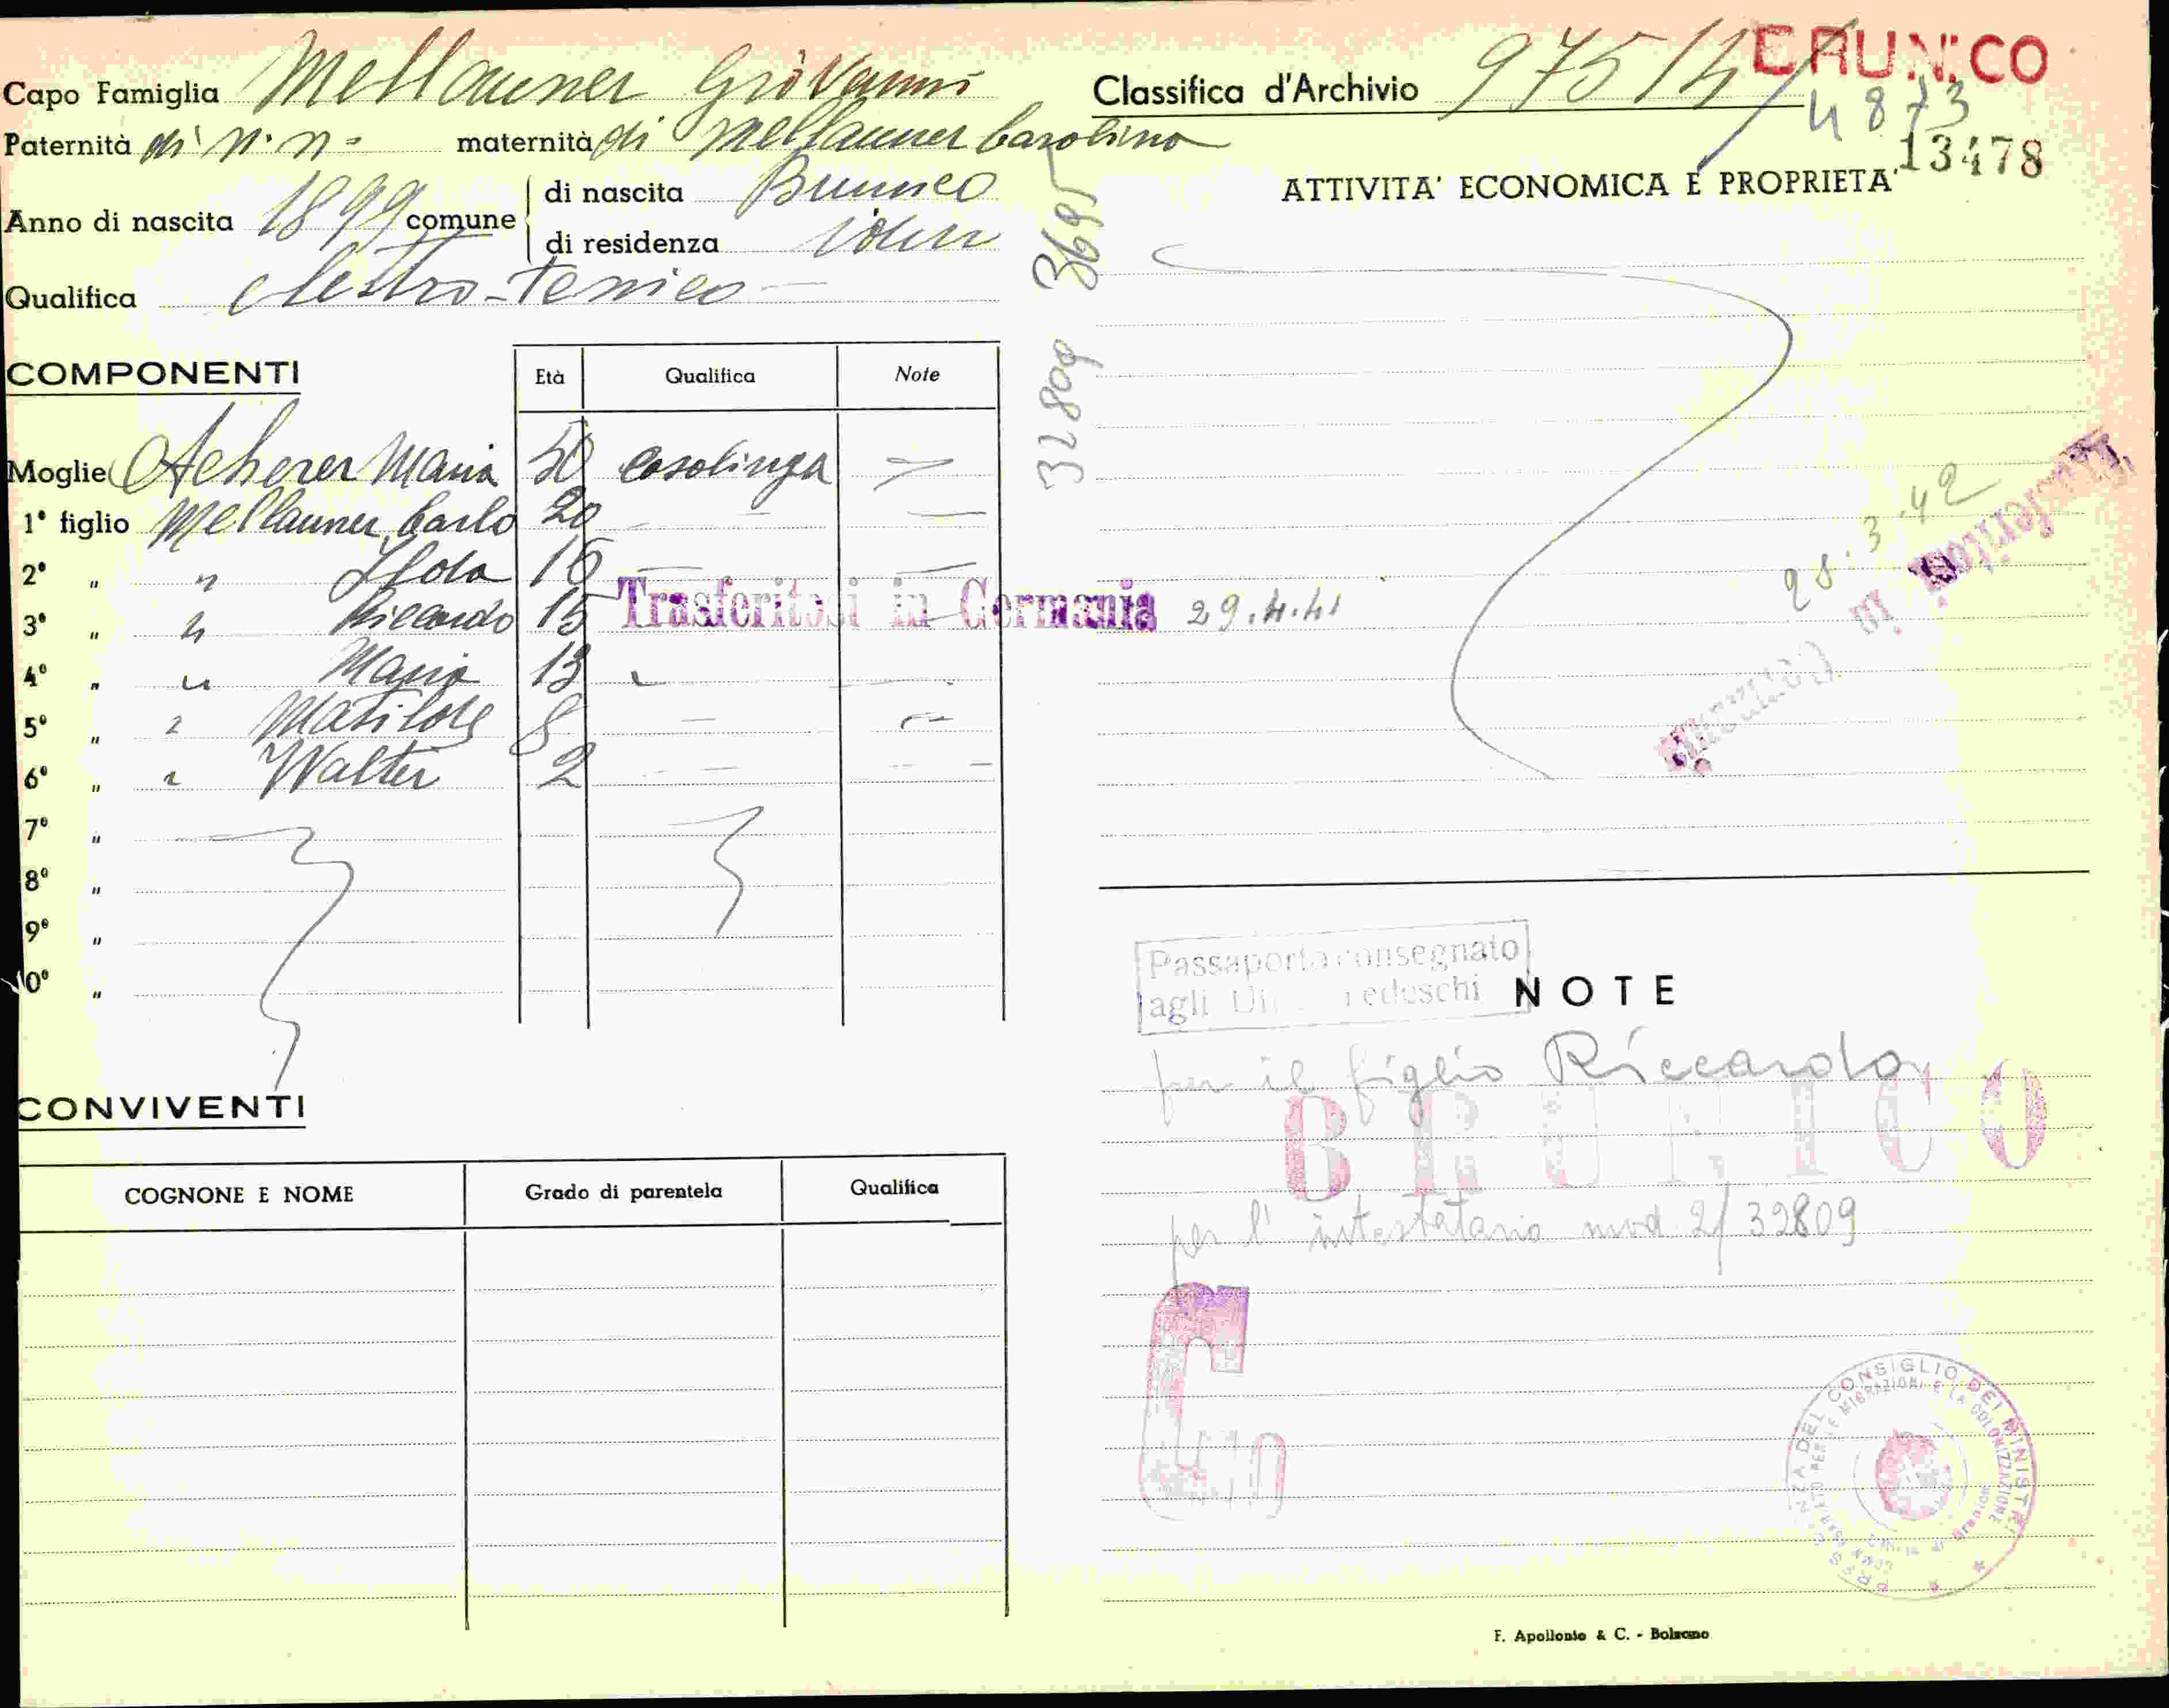 Capo Famiglia Mellauner Giovanni
Paternità di n. n. maternità di Mellauner Carolina
Anno di nascita 1899 comune di nascita Brunico
di residenza idem
Qualifica elettro-tenico
COMPONENTI Età Qualifica Note
Moglie Acherer Maria 50 casalinga
1° figlio Mellauner Carlo 20
2° " " 16
3° " " Riccardo 15 Trasferitosi in Germania 29.4.41
4° " " Maria 13
5° " " Matilde 8
6° " " Walter 2
7° "
8° "
9° "
10° "
CONVIVENTI
COGNONE E NOME Grado di parentela Qualifica
32809 3695
Classifica d'Archivio 975/4
BRUNICO
4873
13478
ATTIVITA' ECONOMICA E PROPRIETA'
28.3.42
Trasferitosi in Germania
Passaporto consegnato
agli Tedeschi
NOTE
per il figlio Riccardo
BRUNICO
per l'intestatario mod 2/32809
CONSIGLIO DEI MINISTRI
MIGRAZIONI E LA COLONIZZAZIONE
F. Apollonio & C. - Bolzano